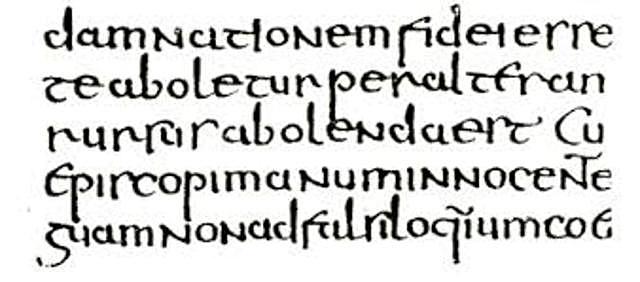 damnationemfideiesse
teaboleturperalteran
rursusabolendaest Cu
episcopimanuminnocen̅te
guamnonadfalsiloq̃iumcoe